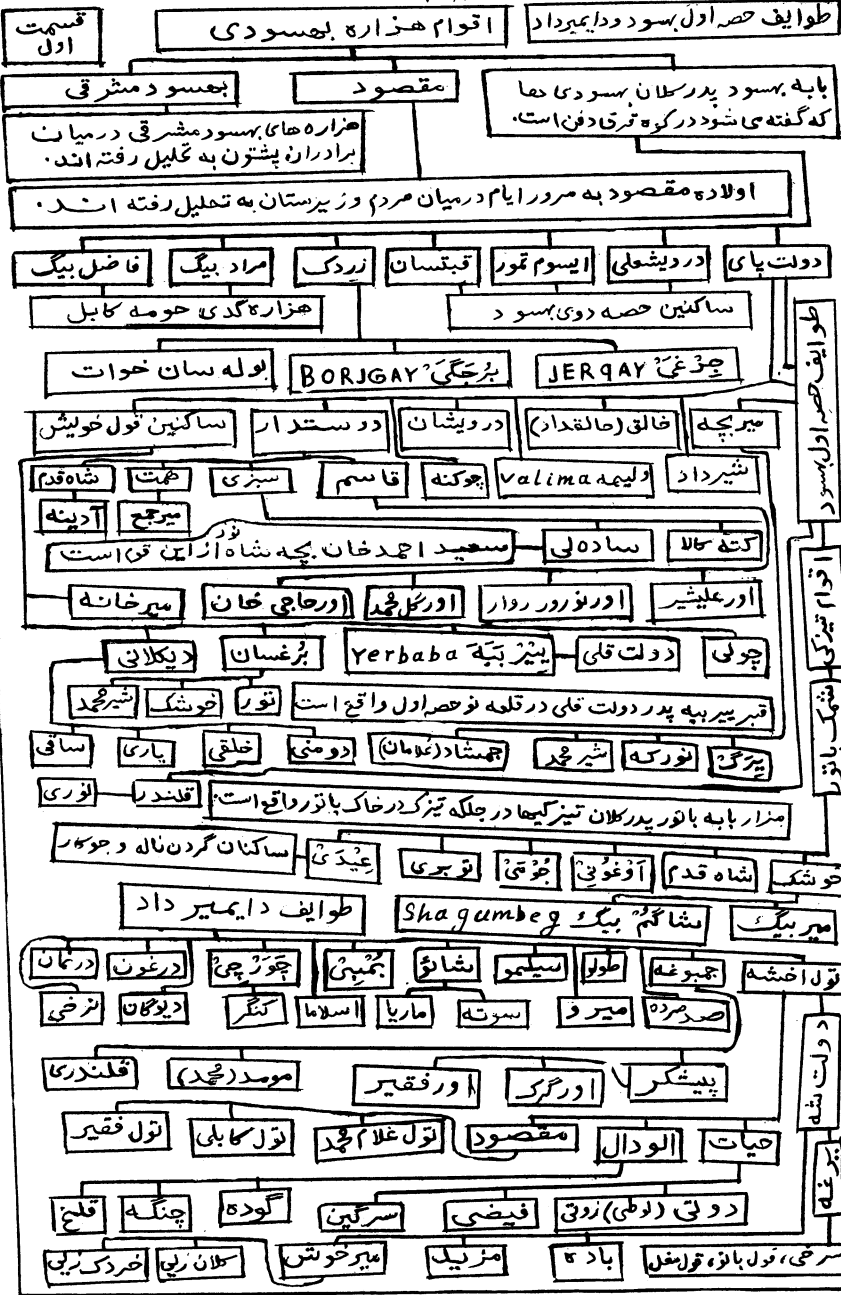 طوایف حصه اول بهسود و دایمیرداد
اقوام هزاره بهسودی
قسمت اول
بابه بهسود پدر کلان بهسودی ها
که گفته می شود در کوه قرق دفن است.
مقصود
بهسود مشرقی
هزاره های بهسود مشرقی در میان
برادران پشتون به تحلیل رفته اند.
اولاده مقصود به مرور ایام در میان مردم وزیرستان به تحلیل رفته اند.
دولت پای
درویشعلی
ایسوم تمور
قبتسان
زردک
مراد بیگ
فاضل بیگ
ساکنین حصه دوی بهسود
هزاره گدی حومه کابل
طوایف حصه اول بهسود
جرغی JERQAY
برجگی BORJGAY
بوله سان خوات
میر بچه
خالق (خالقداد)
درویشان
دوستدار
ساکنین قول خویش
شیرداد
ولیمه valima
چوکنه
قاسم
سبزی
همت
شاه قدم
میر جمع
آدینه
کته کالا
ساده لی
سعید احمد خان بچه شاه نور از این قوم است
اور علیشیر
اور نوروروار
اور گل محمد
اور حاجی خان
میر خانه
اقوام تیزکی
چولی
دولت قلی
ییر ببه Yerbaba
برغسان
دیکلانی
قبر ییر ببه پدر دولت قلی در قلعه نو حصه اول واقع است
نور
خوشک
شیر محمد
شمک باتور
پیرک
نورکه
شیر محمد
جمشاد (غلامان)
دومنی
خلقی
یاری
ساقی
مزار بابه باتور پدر کلان تیزکیها در جلگه تیزک در خاک باتور واقع است.
قلندر
نوری
خوشک
شاه قدم
آوغونی
جومی
نوبری
عیدی
ساکنان گردن ناله و جوکار
میر بیگ
شاگم بیگ Shagumbeg
طوایف دایمیرداد
تول اخشه
جمبوغه
طولو
سیلیمو
شانو
بمبی
چورچی
درغون
درمان
صد مرده
میرو
سوته
ماریا
اسلاما
کنگر
دیوگان
نرخی
دولت شه
پیشکر
اورگرک
اور فقیر
مومد (محمد)
قلندری
حیات
الودال
مقصود
تول غلام محمد
تول کابلی
تول فقیر
برغه
دولتی (لوطی) زوتی
فیضی
سرگین
گوده
چنگه
قلخ
سرخی، قول باتو، قول مغل
باده
مزید
میر خوش
کلان زلی
خردک زلی